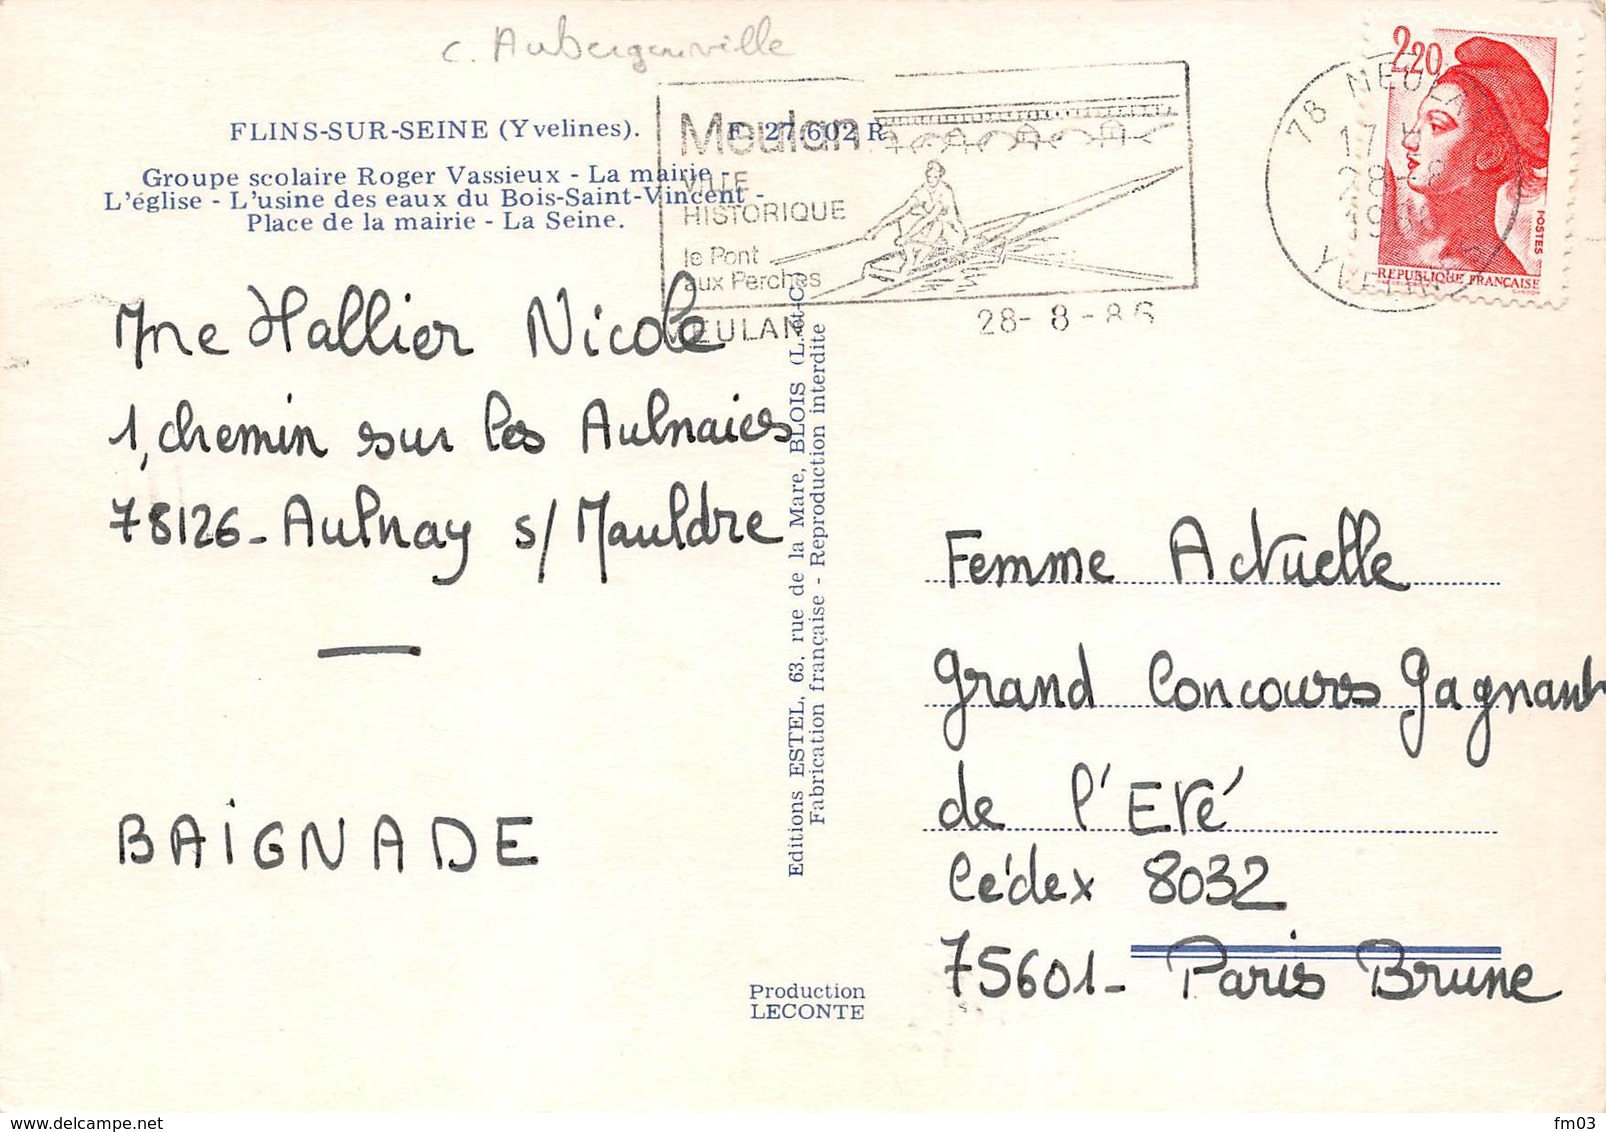 c. Aubergenville
FLINS-SUR-SEINE (Yvelines).
E. 27 602 R
Groupe scolaire Roger Vassieux - La mairie -
L'église - L'usine des eaux du Bois-Saint-Vincent -
Place de la mairie - La Seine.
Meulan
VILLE
HISTORIQUE
le Pont
aux Perches
MEULAN
28-8-86
78 MEULAN
17 H
28-8
YVELINES
2,20
POSTES
REPUBLIQUE FRANÇAISE
GANDON
Mme Hallier Nicole
1, chemin sur les Aulnaies
78126 - Aulnay s/ Mauldre
BAIGNADE
Editions ESTEL, 63, rue de la Mare, BLOIS (L.-et-C.)
Fabrication française - Reproduction interdite
Production
LECONTE
Femme Actuelle
Grand Concours Gagnant
de l'Eté
Cédex 8032
75601 - Paris Brune
www.delcampe.net
fm03